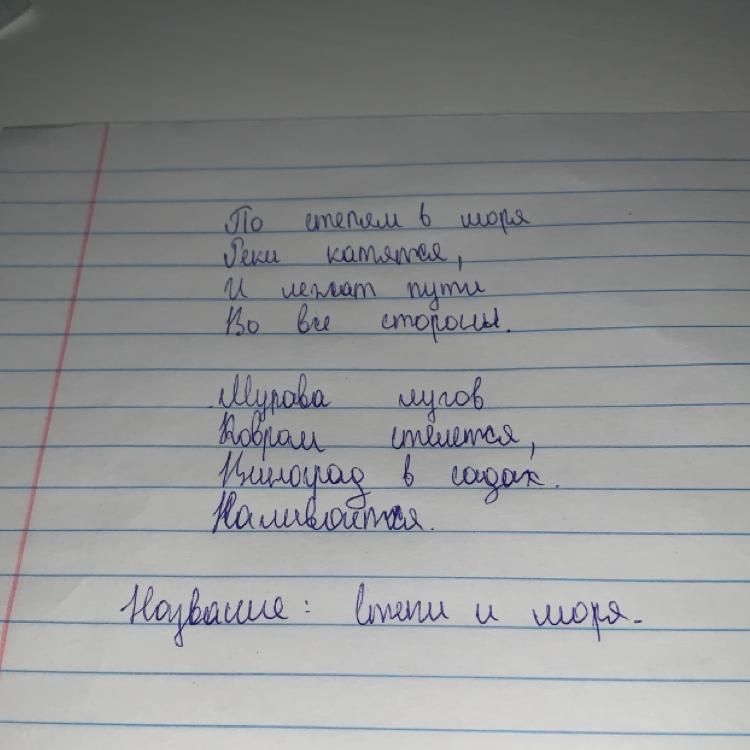 По степям в моря
Реки катятся,
И лежат пути
Во все стороны.
Мурава лугов
Ковром стелется,
Виноград в садах.
Наливается.
Название: Степи и моря.